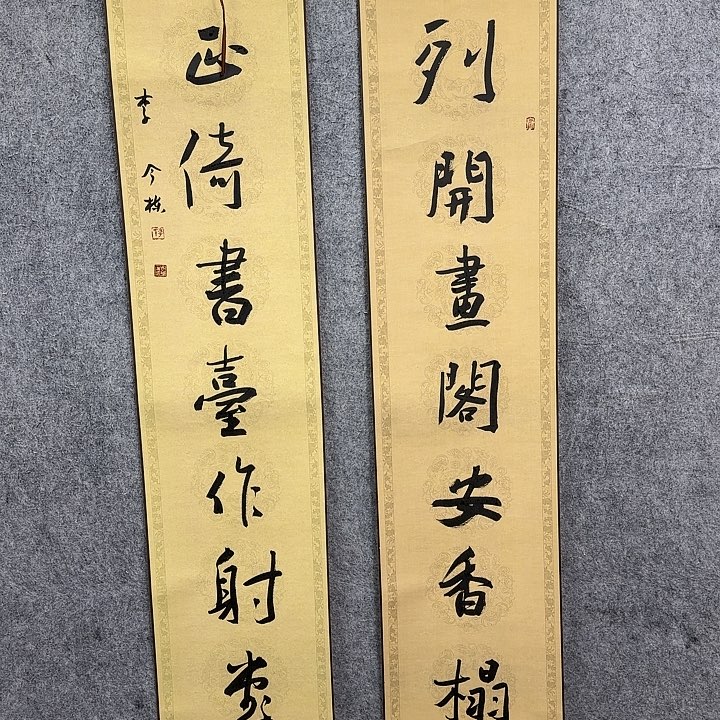 列開畫閣安香榻
正倚書臺作射堂
李今栋